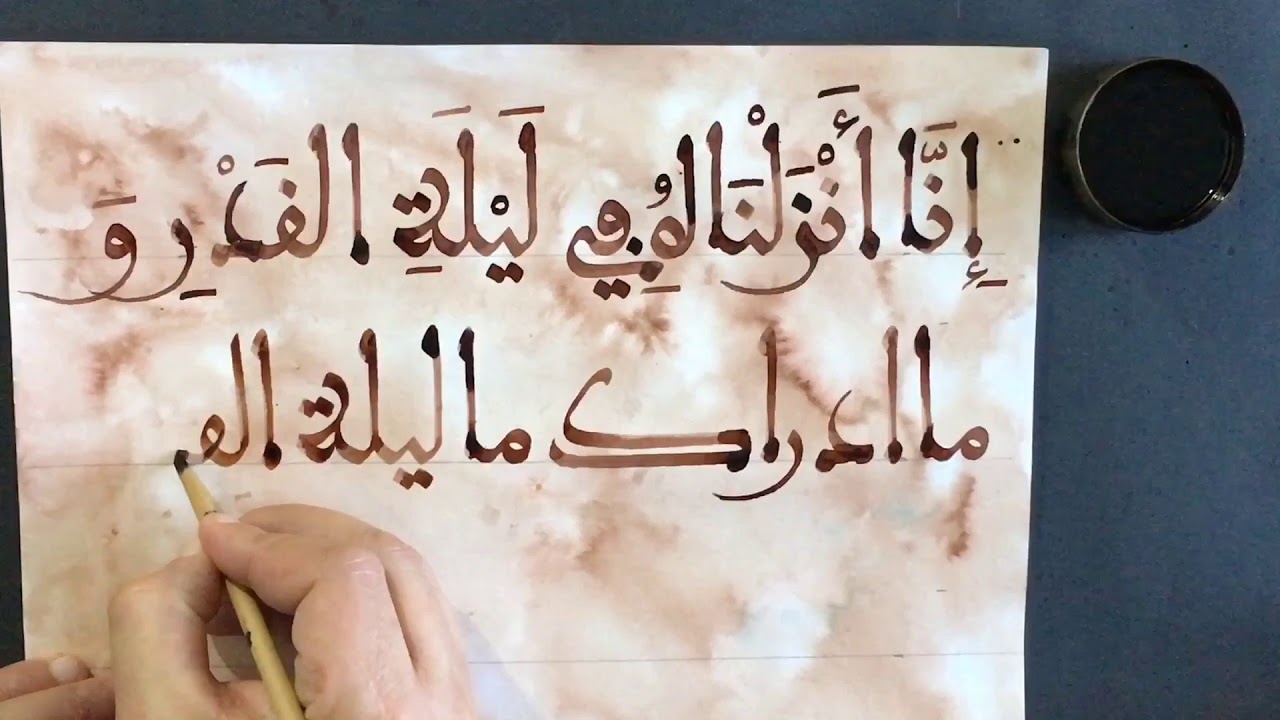 إِنَّا أَنْزَلْنَاهُ فِي لَيْلَةِ الْقَدْرِ وَ
ما ادراك ما ليلة الق